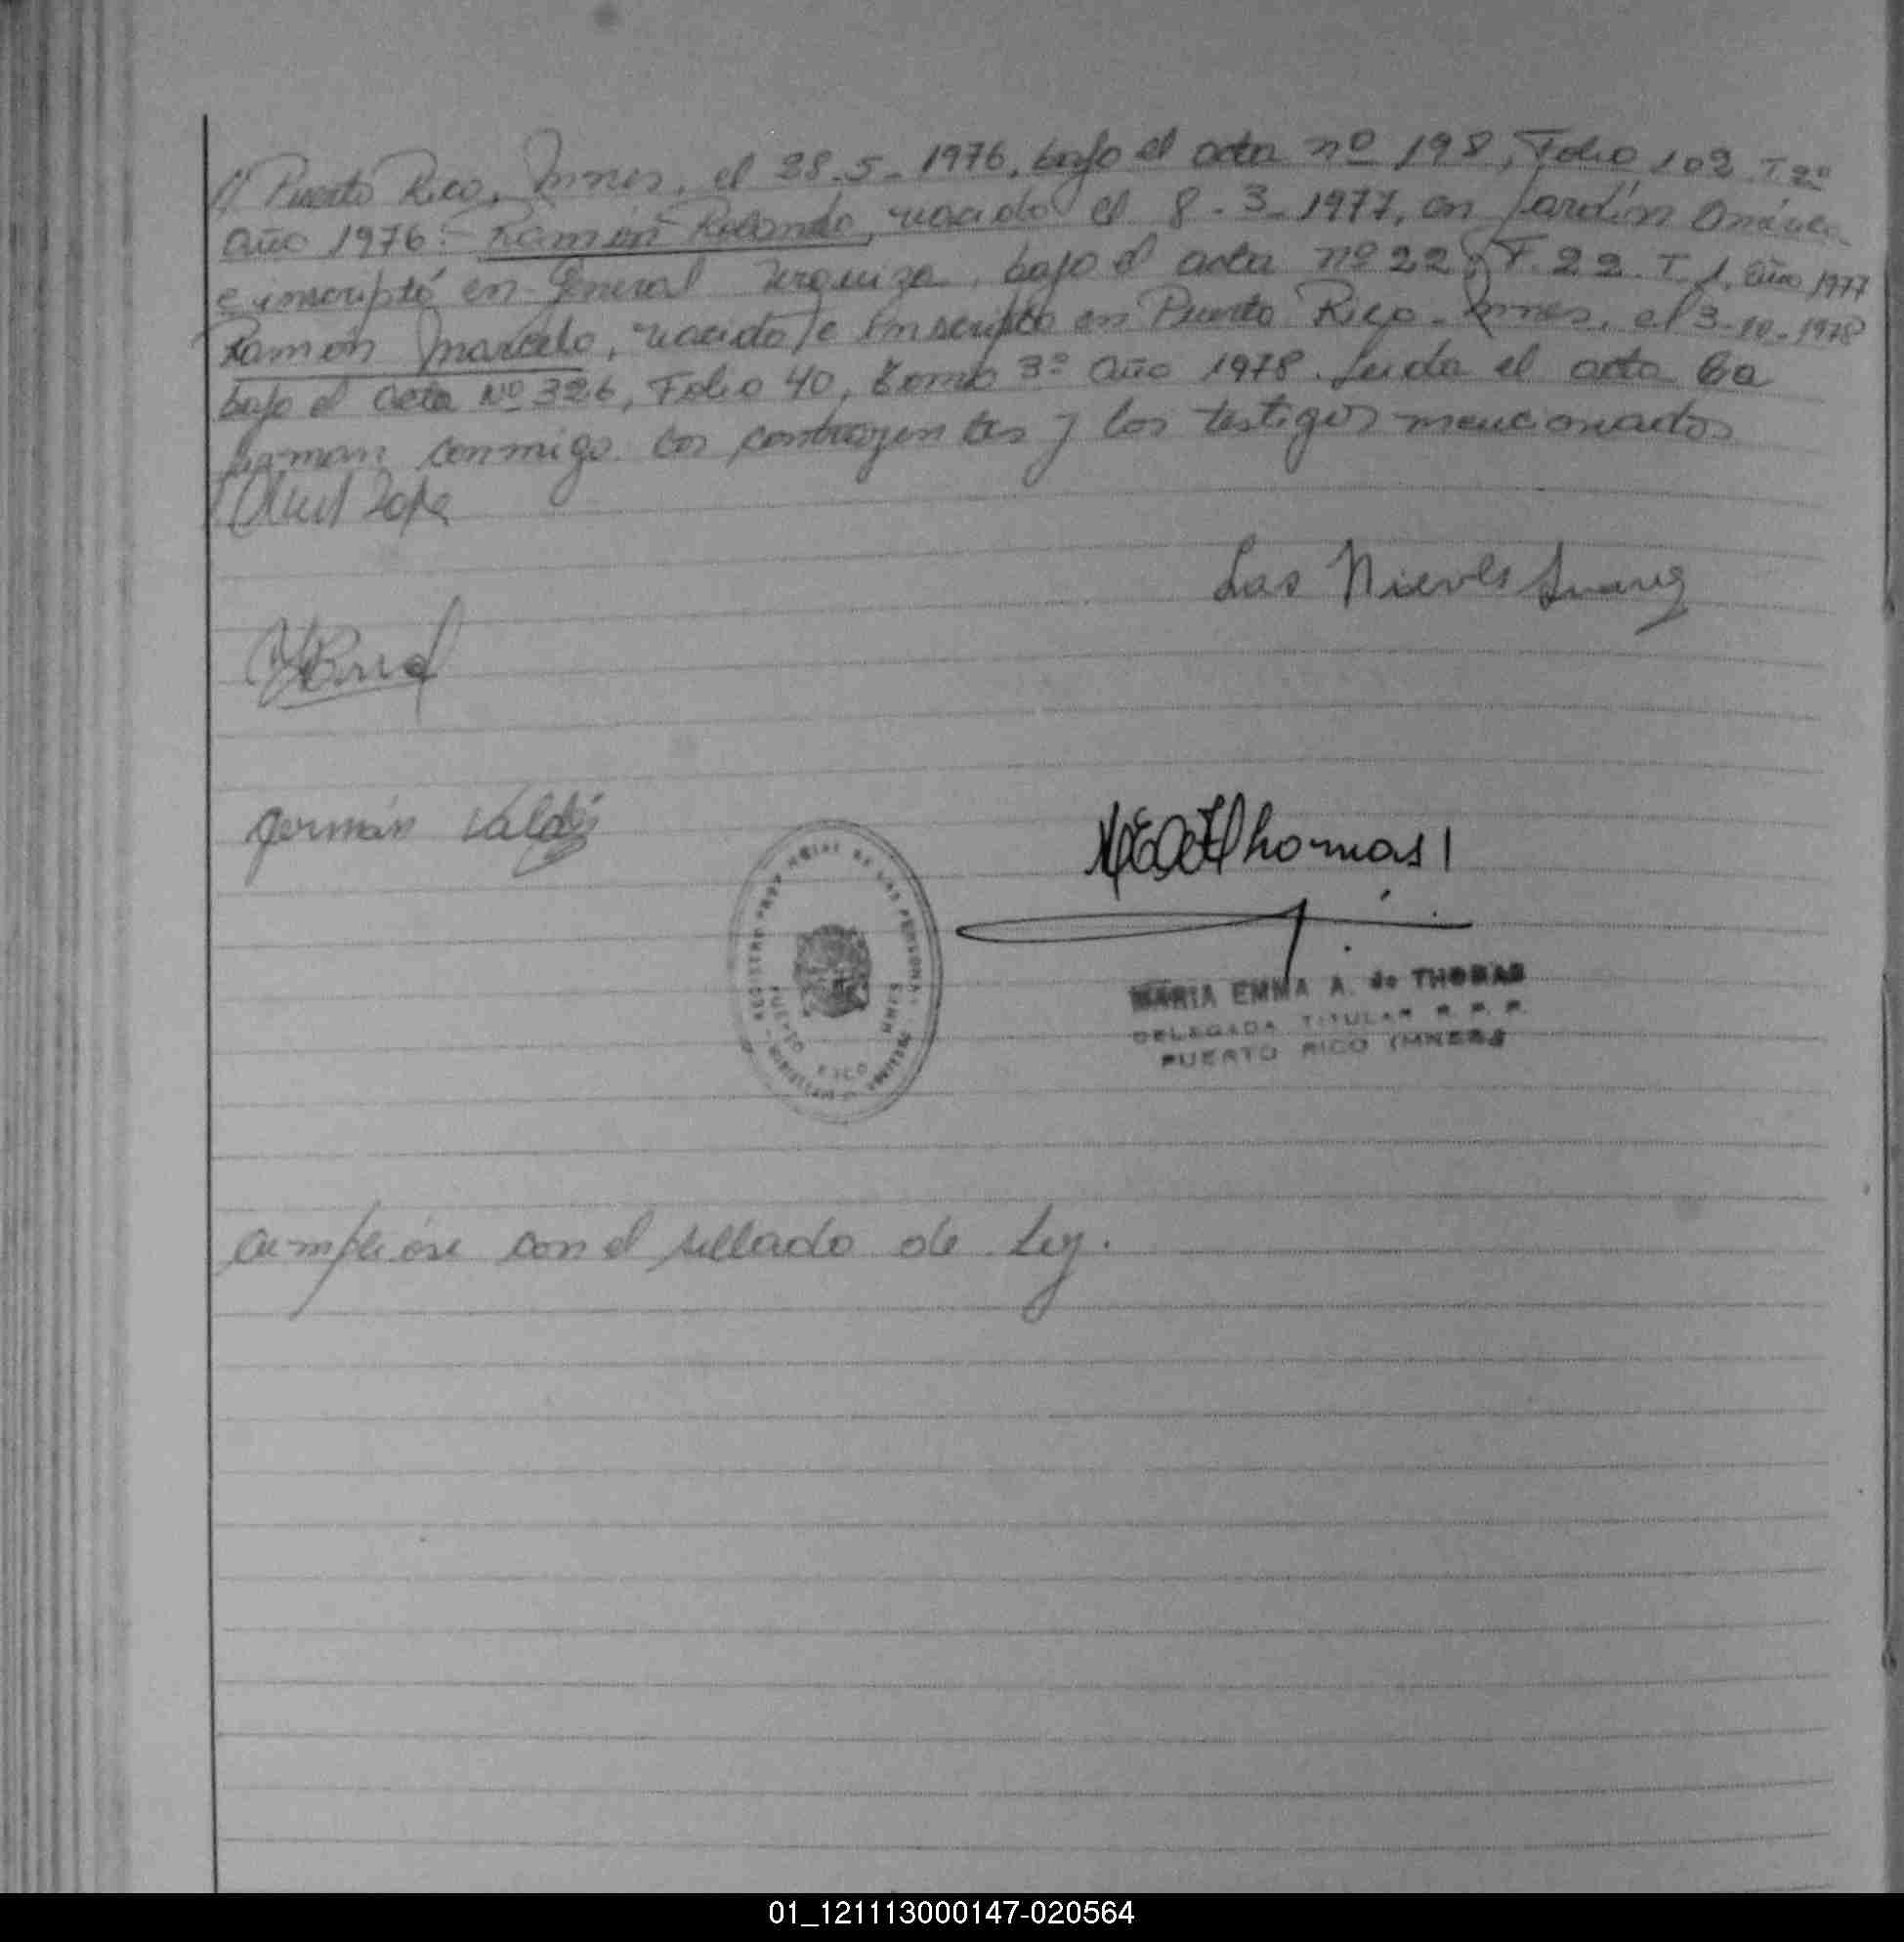 // Puerto Rico, Mnes, el 28-5-1976, bajo el acta nº 198, Folio 102 T.2º
Año 1976.- Ramón Rolando, nacido el 8-3-1977, en Jardín América
e inscripto en General Urquiza, bajo el acta nº 22, F. 22. T. 1, año 1977
Ramón Marcelo, nacido e inscripto en Puerto Rico-Mnes, el 3-10-1978
bajo el acta Nº 326, Folio 40, tomo 3º año 1978. Leida el acta la
firman conmigo los contrayentes y los testigos mencionados
Las Nieves Suarez
germán Valdés
Thomas
MARIA EMMA A. de THOMAS
DELEGADA TITULAR R. P. P.
PUERTO RICO (MNES)
REGISTRO PROVINCIAL DE LAS PERSONAS
PUERTO RICO
cumplióse con el sellado de Ley.
01_121113000147-020564